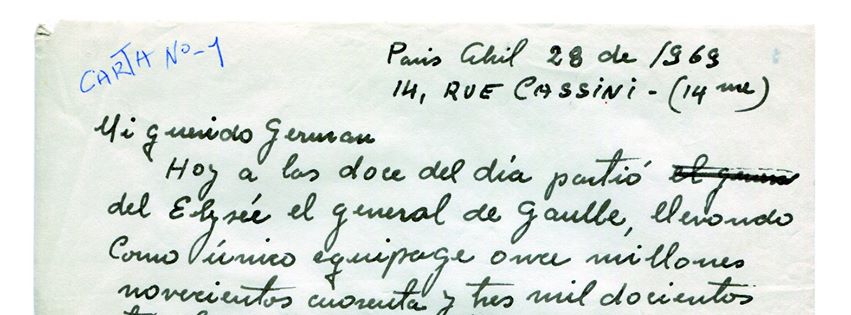 CARTA No-1
Paris Abril 28 de 1969
14, RUE CASSINI - (14 me)
Mi querido German
Hoy a las doce del día partió el genera
del Elysée el general de Gaulle, llevando
como único equipage once millones
novecientos cuarenta y tres mil docientos